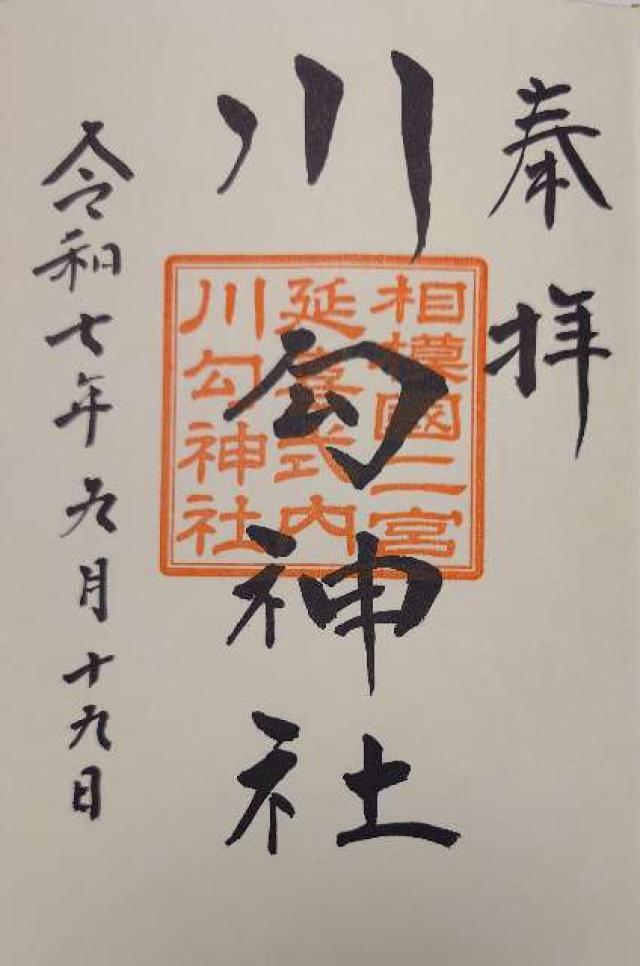 奉拝
川勾神社
相模國二宮
延喜式内
川勾神社
令和七年五月十九日